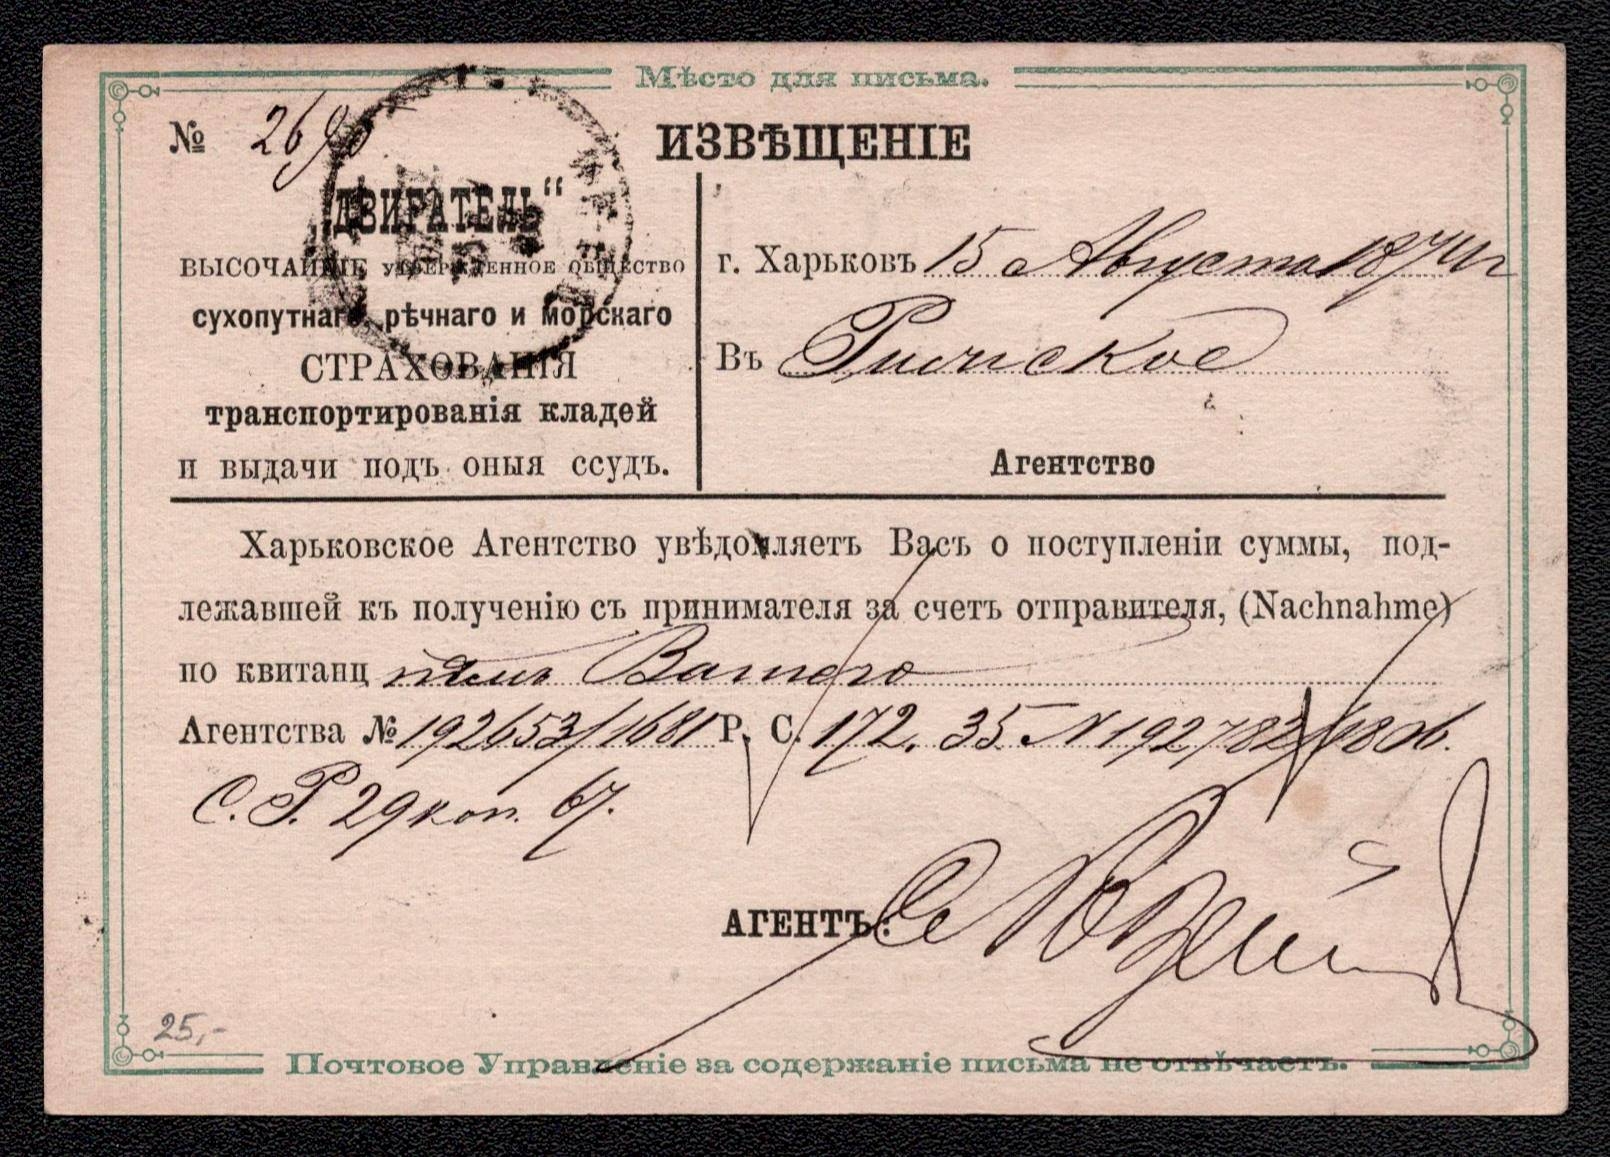 Мѣсто для письма.
№ 2695
ИЗВѢЩЕНІЕ
„ДВИГАТЕЛЬ“
ВЫСОЧАЙШЕ УТВЕРЖДЕННОЕ ОБЩЕСТВО
сухопутнаго, рѣчнаго и морскаго
СТРАХОВАНІЯ
транспортированія кладей
и выдачи подъ оныя ссудъ.
г. Харьковъ 15 Августа 1874 г
Въ Рижское
Агентство
Харьковское Агентство увѣдомляетъ Васъ о поступленіи суммы, под-
лежавшей къ полученію съ принимателя за счетъ отправителя, (Nachnahme)
по квитанц іямъ Вашего
Агентства № 192653/1681 Р. С. 172. 35 N 192782/1806.
С. Р. 29 коп. 67.
АГЕНТЪ:
25,-
Почтовое Управленіе за содержаніе письма не отвѣчаетъ.